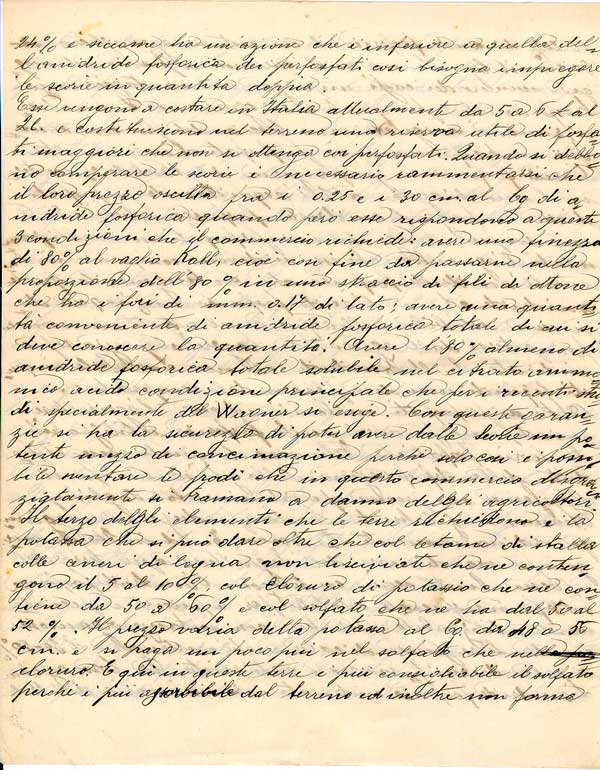 24 % e siccome ha un'azione che è inferiore a quella del-
l'anidride fosforica dei perfosfati così bisogna impiegare
le scorie in quantità doppia.
Esse vengono a costare in Italia attualmente da 5 a 6 £ al
Ql. e costituiscono nel terreno una riserva utile di fosfa-
ti maggiori che non si ottenga coi perfosfati. Quando si debbo-
no comperare le scorie è necessario rammentarsi che
il loro prezzo oscilla fra i 0.25 e i 30 cm. al Cg di a-
nidride fosforica quando però esse rispondono a queste
3 condizioni che il commercio richiede: avere una finezza
di 80% al vaglio Kall, cioè così fine da passarne nella
proporzione dell'80 % in uno staccio di fili di
che ha i fori di mm. 0.17 di lato; avere una quanti-
tà conveniente di anidride fosforica totale di cui si
deve conoscere la quantità. Avere l'80% almeno di
anidride fosforica totale solubile nel citrato ammo-
nico acido condizione principale che per i recenti stu-
di specialmente del Wagner si esige. Con queste garan-
zie si ha la sicurezza di poter avere dalle scorie un po-
tente mezzo di concimazione perchè solo così è possi-
bile sventare le frodi che in questo commercio
si tramano a danno degli agricoltori.
Il terzo degli elementi che le terre richiedono è la
potassa che si può dare oltre che col letame di stalla
colle ceneri di legna non lisciviate che ne conten-
gono il 5 al 10 % col cloruro di potassio che ne con-
tiene da 50 a 60 % e col solfato che ne ha dal 50 al
52 %. Il prezzo varia della potassa al Cg da 48 a 56
cm. e si paga un poco più nel solfato che nel
cloruro. E qui in queste terre è più consigliabile il solfato
perchè è più assorbibile dal terreno ed inoltre non forma